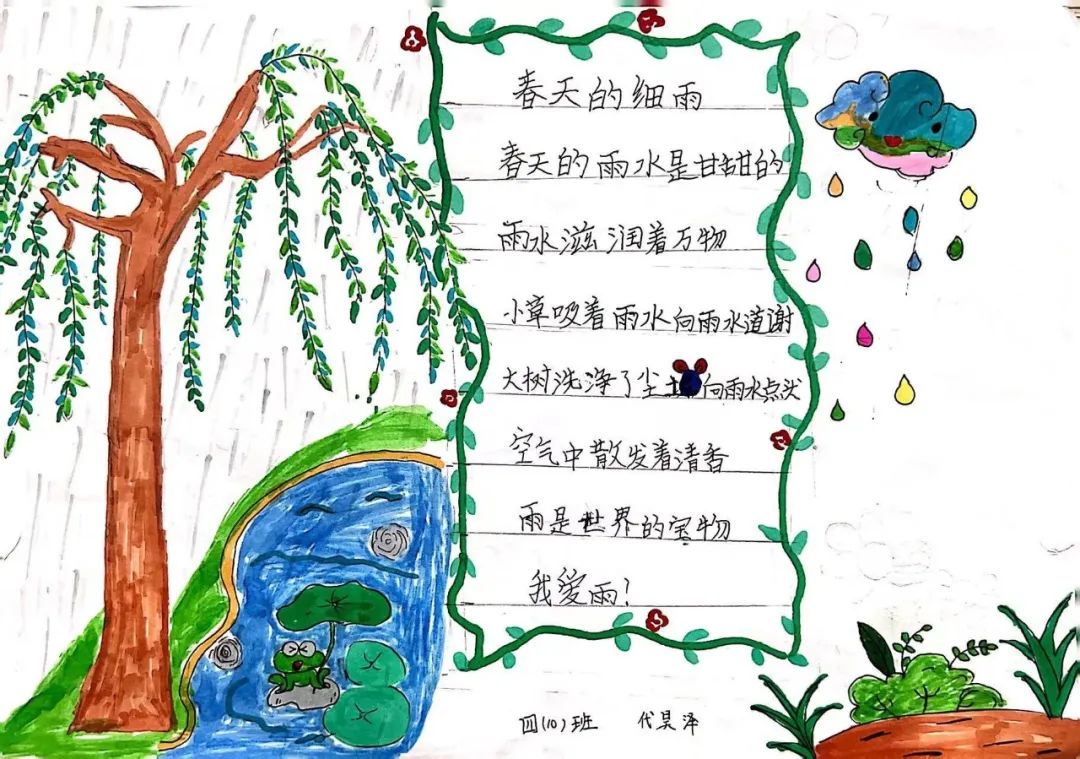 春天的细雨
春天的雨水是甘甜的
雨水滋润着万物
小草吸着雨水向雨水道谢
大树洗净了尘土向雨水点头
空气中散发着清香
雨是世界的宝物
我爱雨!
四(10)班 代昊泽